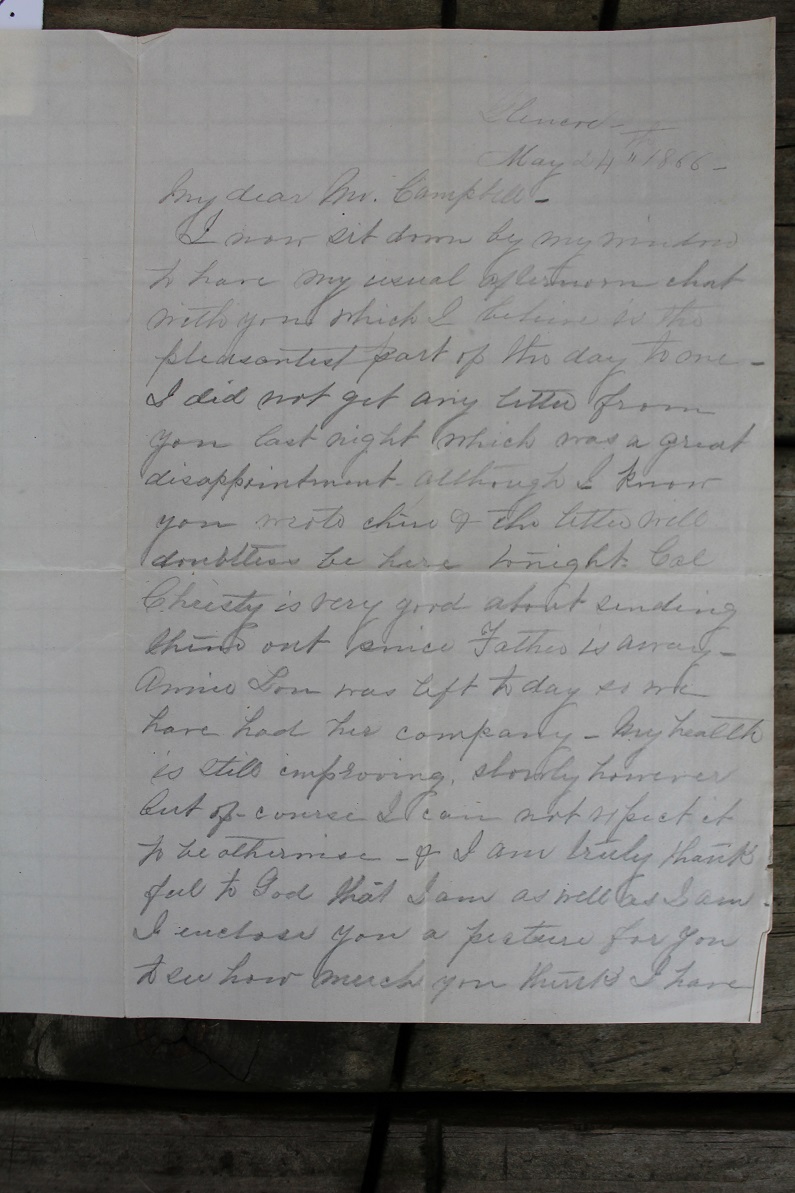 Glencoe -
May 24th 1866 -
My dear Mr. Campbell -
I now sit down by my window
to have my usual afternoon chat
with you which I believe is the
pleasantest part of the day to me -
I did not get any letter from
you last night which was a great
disappointment - although I know
you wrote & the letter will
doubtless be here tonight - Col
Christy is very good about sending
them out since Father is away -
Annie Lou was left today so we
have had her company - My health
is still improving, slowly however
but of course I can not expect it
to be otherwise - & I am truly thank
ful to God that I am as well as I am -
I enclose you a picture for you
to see how much you think I have